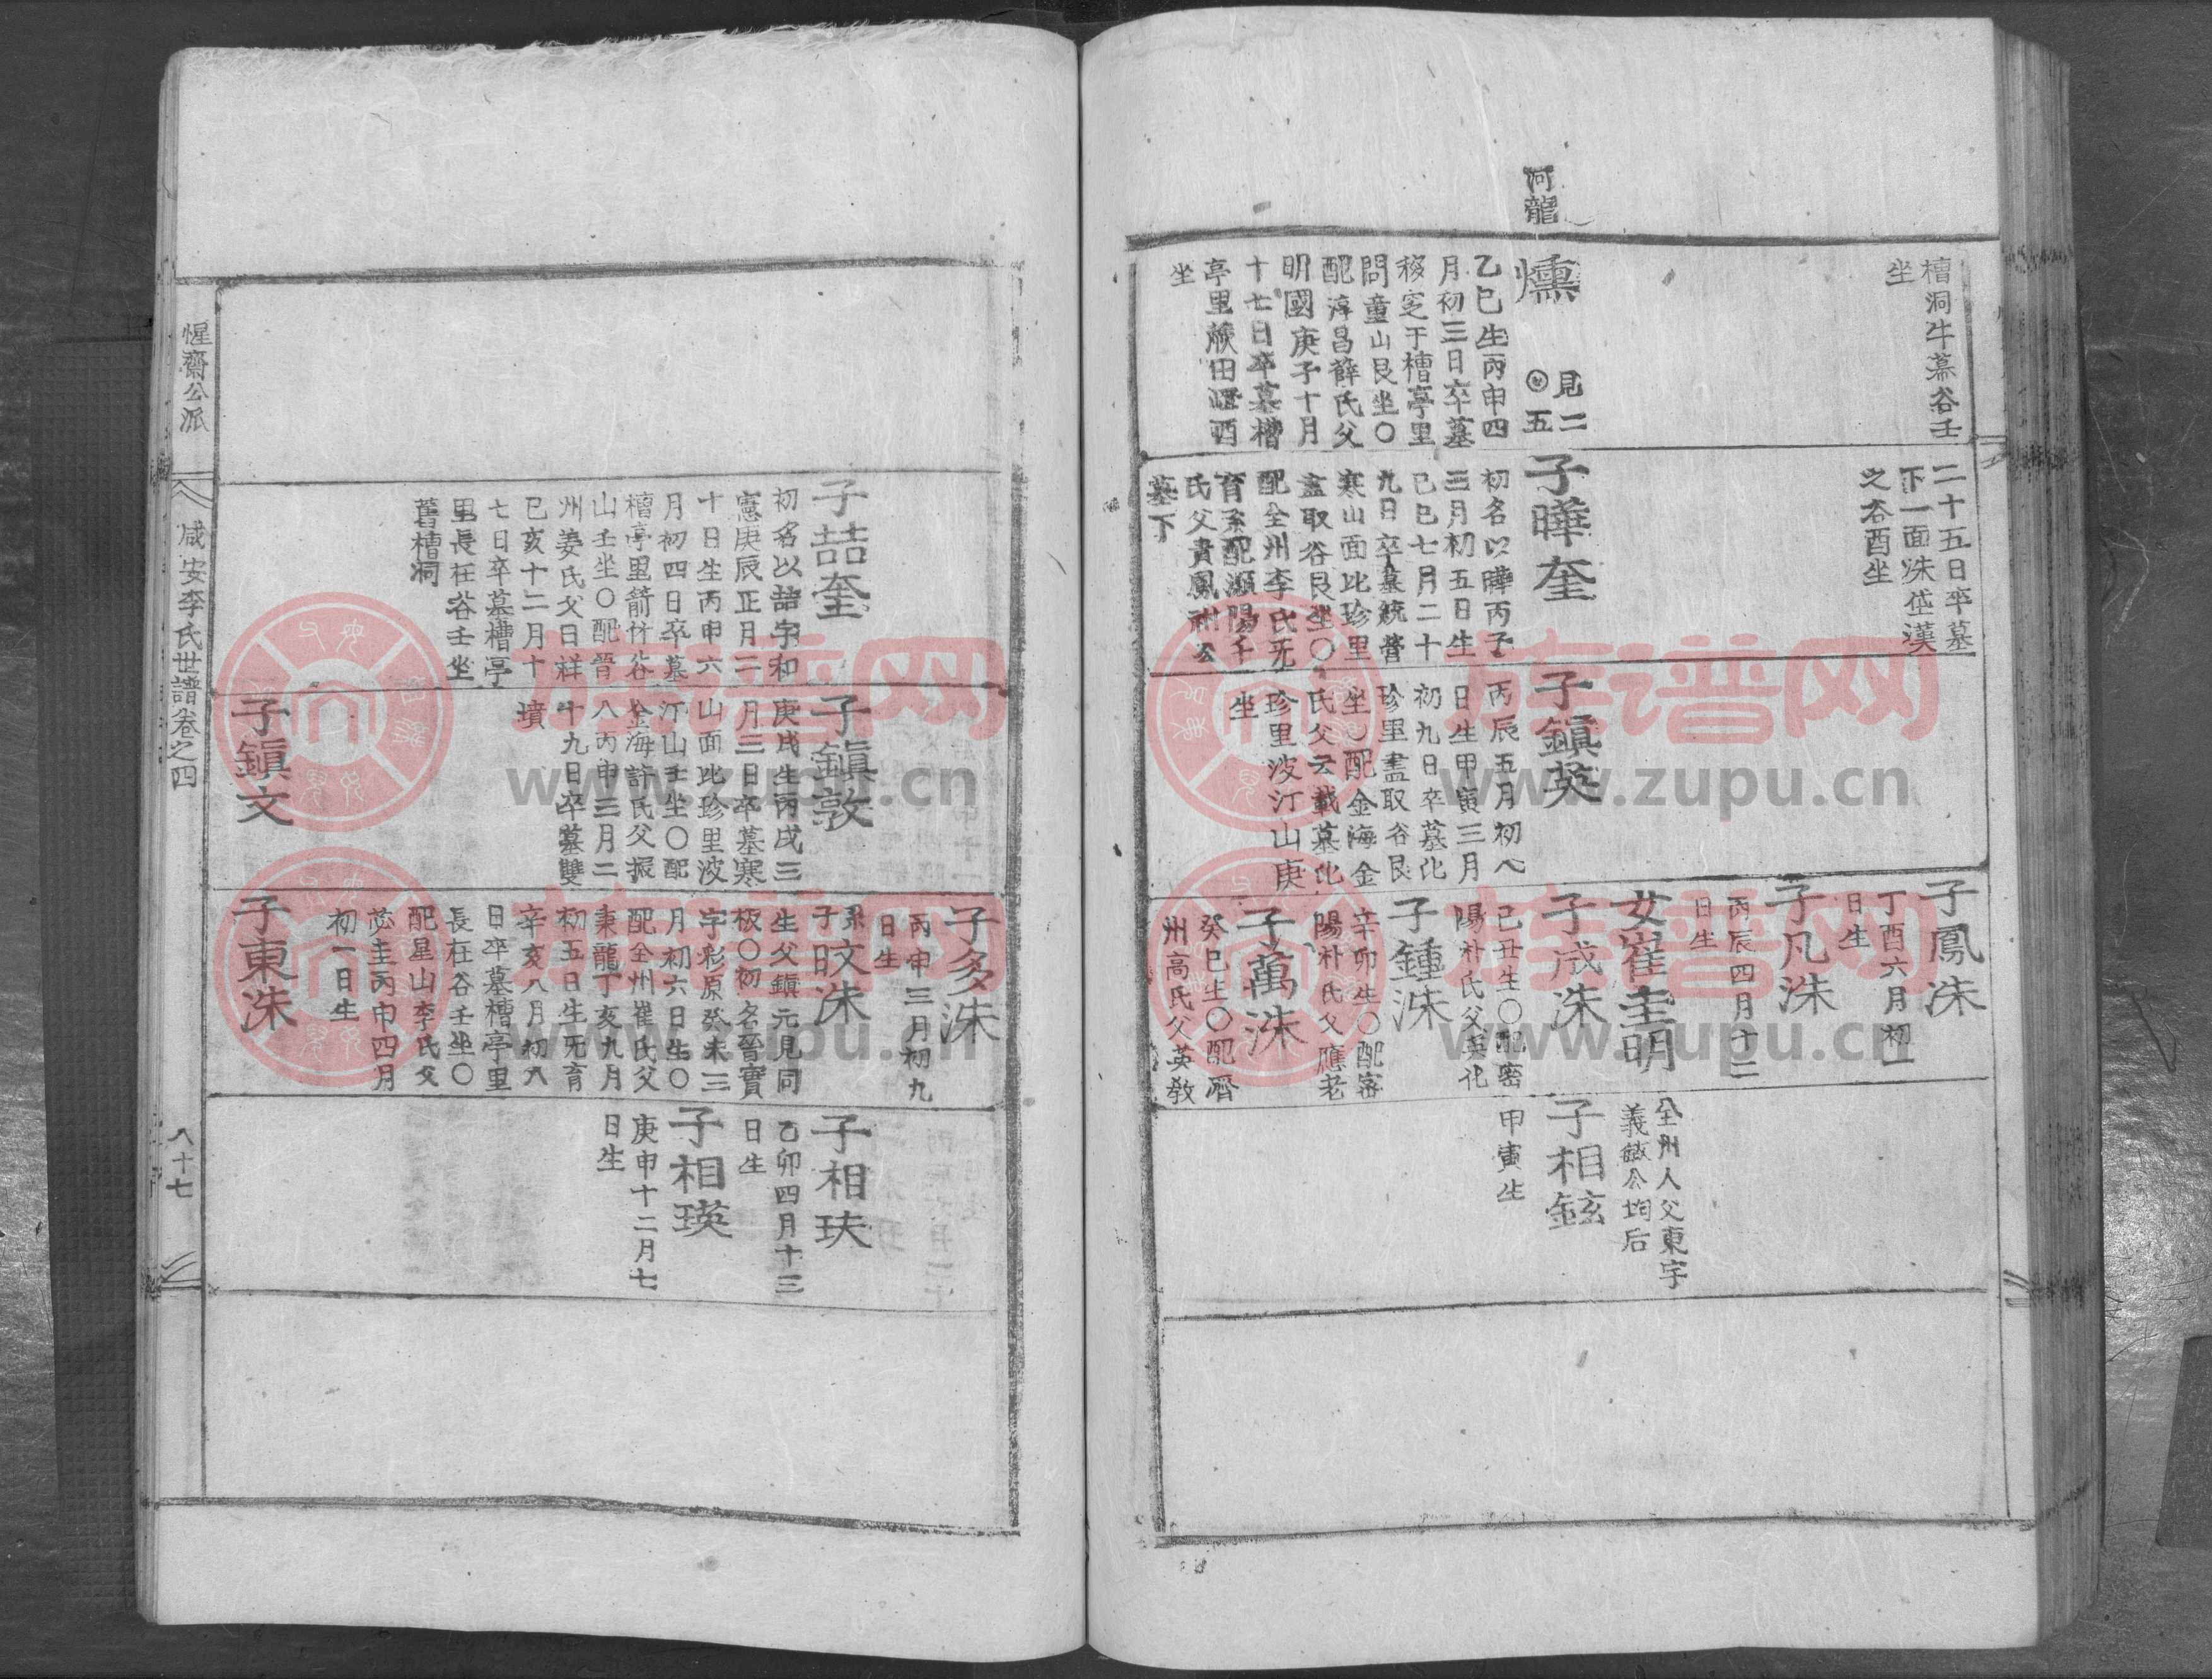 河龍
槽洞牛慕谷壬
坐
燻
見二
五
乙巳生丙申四
月初三日卒墓
移窆于槽亭里
問童山艮坐○
配淳昌薛氏父
明國庚子十月
十七日卒墓槽
亭里蕨田嶝酉
坐
二十五日卒墓
下一面洙垈漢
之谷酉坐
子曄奎
初名以曄丙子
三月初五日生
己巳七月二十
九日卒墓統營
寒山面比珍里
盡取谷艮坐○
配全州李氏无
育系配潁陽千
氏父貴鳳祔公
墓下
子鎭英
丙辰五月初八
日生甲寅三月
初九日卒墓比
珍里盡取谷艮
坐○配金海金
氏父云載墓比
珍里波汀山庚
坐
子鳳洙
丁酉六月初一
日生
子凡洙
丙辰四月十二
日生
女崔圭明
全州人父東字
義鐵公均后
子成洙
己丑生○配密
陽朴氏父英化
子相鉉
甲寅生
子鍾洙
辛卯生○配密
陽朴氏父應老
子萬洙
癸巳生○配濟
州高氏父英教
子喆奎
初名以喆字和
憲庚辰正月二
十日生丙申六
月初四日卒墓
槽亭里箭竹谷
山壬坐○配晉
州姜氏父日祥
己亥十二月十
七日卒墓槽亭
里長在谷壬坐
舊槽洞
子鎭敦
庚戌生丙戌三
月三日卒墓寒
山面比珍里波
汀山壬坐○配
金海許氏父振
八丙申三月二
十九日卒墓雙
墳
子鎭文
子多洙
丙申三月初九
日生
系子旼洙
生父鎭元見同
板○初名晉寶
字彩原癸未三
月初六日生○
配全州崔氏父
秉龍丁亥九月
初五日生无育
辛亥八月初八
日卒墓槽亭里
長在谷壬坐○
配星山李氏父
苾圭丙申四月
初一日生
子東洙
子相玞
乙卯四月十三
日生
子相瑛
庚申十二月七
日生
惺齋公派
咸安李氏世譜卷之四
八十七
族谱网
www.zupu.cn
族谱网
www.zupu.cn
族谱网
www.zupu.cn
族谱网
www.zupu.cn